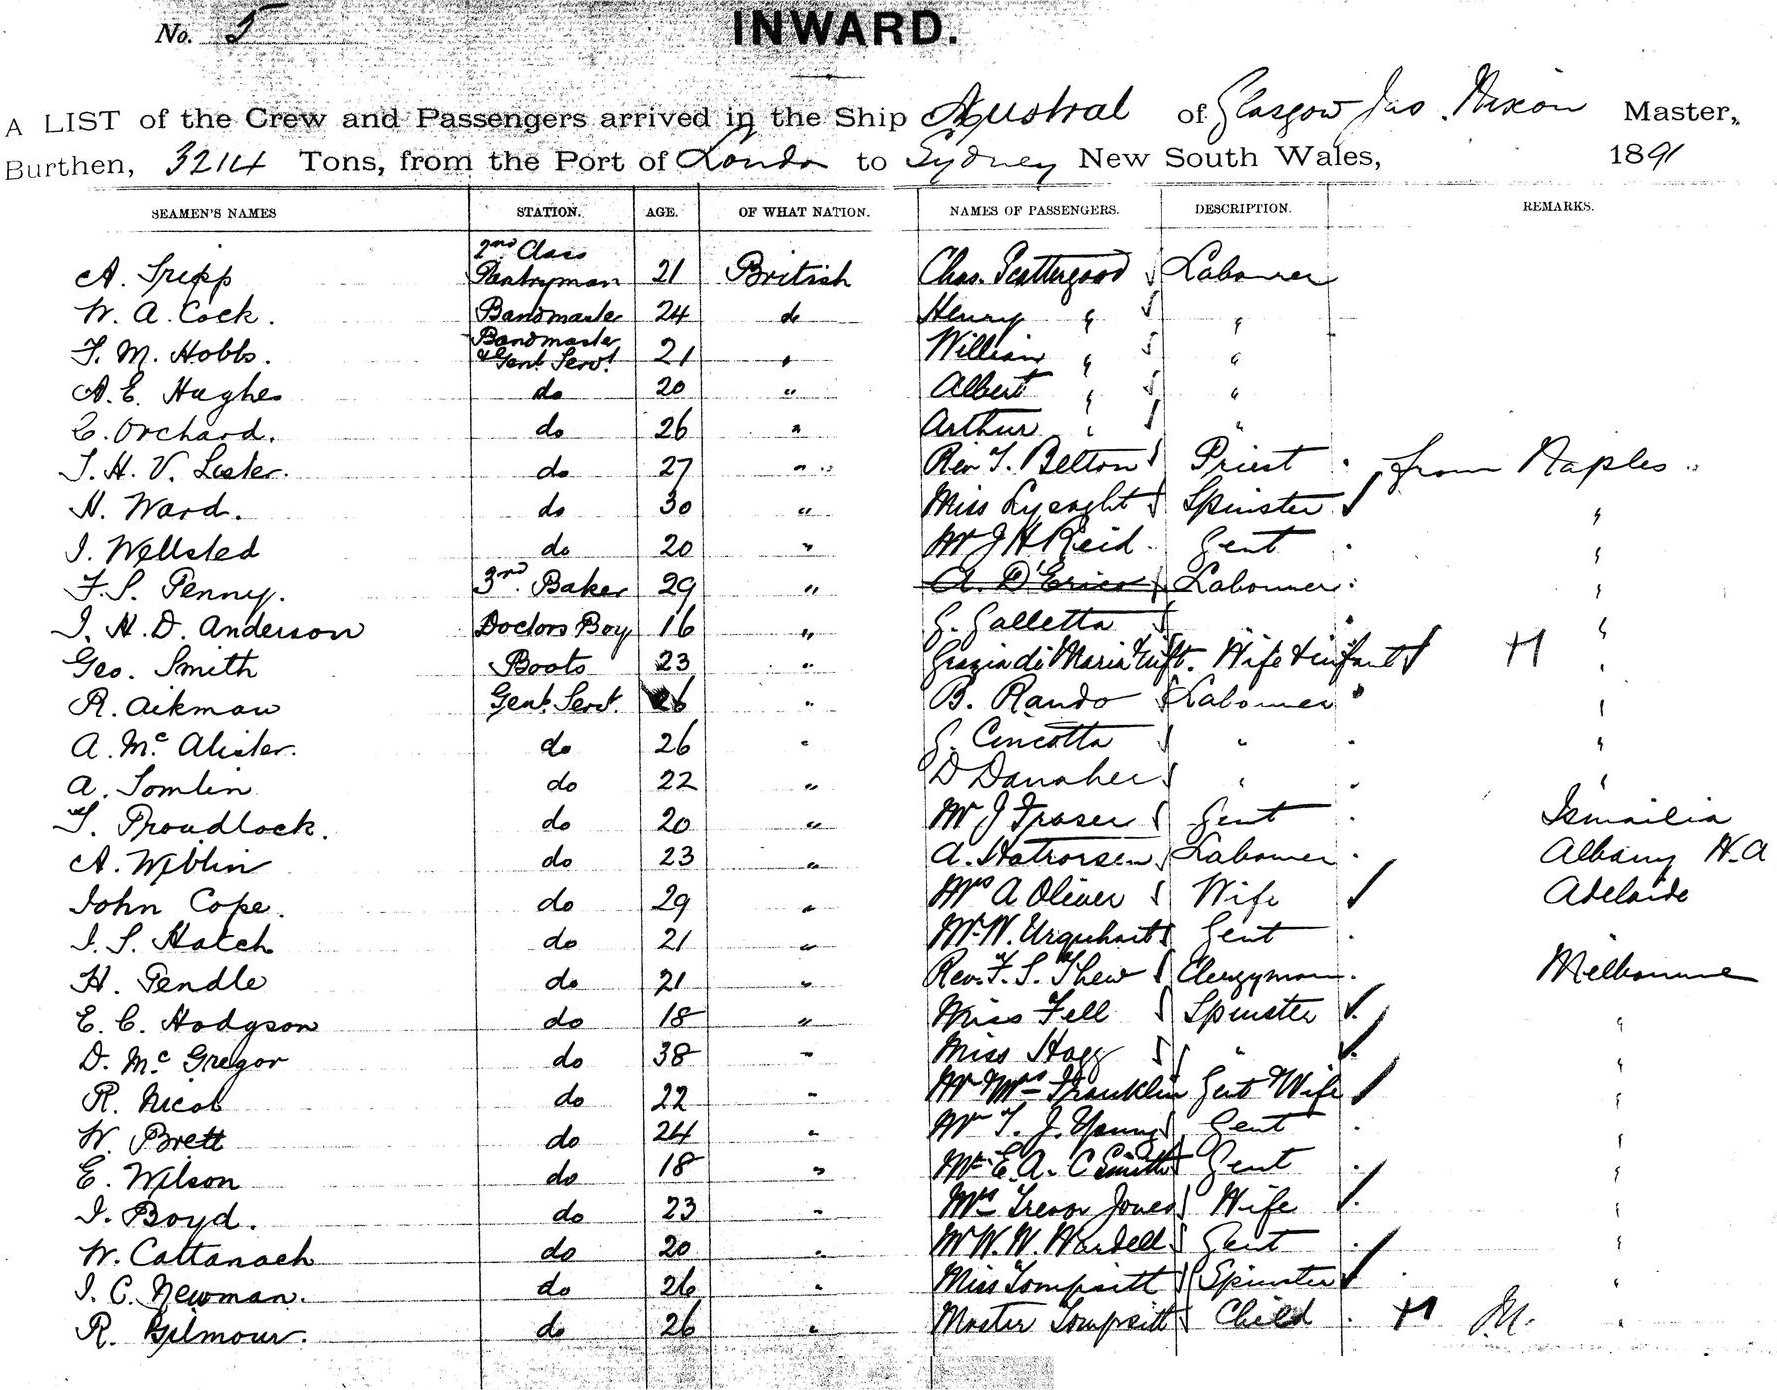 No. 5
INWARD.
A LIST of the Crew and Passengers arrived in the Ship Austral of Glasgow Jas. Nixon Master,
Burthen, 3214 Tons, from the Port of London to Sydney New South Wales, 1891
SEAMEN'S NAMES STATION. AGE. OF WHAT NATION. NAMES OF PASSENGERS. DESCRIPTION. REMARKS.
A. Tripp 2nd Class Pantryman 21 British Chas. Scattergood Labourer
W. A. Cock. Bandmaster 24 do Henry " "
F. M. Hobbs. Bandmaster & Genl. Servt. 21 " William " "
A. E. Hughes do 20 " Albert " "
C. Orchard. do 26 " Arthur " "
J. H. V. Lester. do 27 " Rev. T. Belton Priest from Naples
H. Ward. do 30 " Miss Lysaght Spinster "
J. Wellsted do 20 " Mr J H Reid. Gent "
F. S. Penny. 3rd Baker 29 " A. D'Erico Labourer "
J. H. D. Anderson Doctors Boy 16 " G. Galletta " "
Geo. Smith Boots 23 " Grazia di Maria Wife & infant H "
R. Aikman Genl. Servt. 26 " B. Rando Labourer "
A. McAlister. do 26 " G. Cincotta " "
A. Tomlin do 22 " D Danaher " "
T. Proudlock. do 20 " Mr J Fraser Gent Ismailia
A. Weblin do 23 " A. Labourer Albany W.A
John Cope. do 29 " Mrs A Oliver Wife Adelaide
J. S. Hatch do 21 " Mr W. Urquhart Gent
H. Pendle do 21 " Rev. F. S. Thew Clergyman. Melbourne
E. C. Hodgson do 18 " Miss Fell Spinster "
D. McGregor do 38 " Miss Hogg " "
R. Nicol do 22 " Mr Mrs Franklin Gent Wife "
W. Brett do 24 " Mr T. J. Young Gent "
E. Wilson do 18 " Mr E. A. C Smith Gent "
J. Boyd. do 23 " Mrs Trevor Jones Wife "
W. Cattanach do 20 " Mr W. W. Wardell Gent "
J. C. Newman. do 26 " Miss Tompsitt Spinster "
R. Gilmour. do 26 " Master Tompsitt Child H M. "